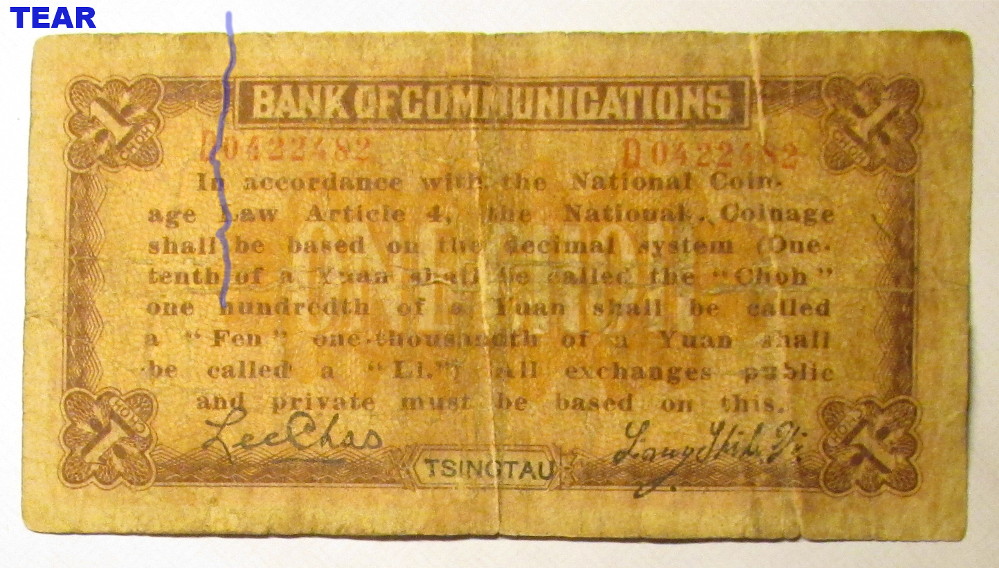 TEAR
BANK OF COMMUNICATIONS
D0422482 D0422482
In accordance with the National Coin-
age Law Article 4, the National Coinage
shall be based on the decimal system (One-
tenth of a Yuan shall be called the "Choh"
one hundredth of a Yuan shall be called
a "Fen" one-thousandth of a Yuan shall
be called a "Li.") All exchanges public
and private must be based on this.
ONE CHOH
1 CHOH
1 CHOH
1 CHOH
1 CHOH
Lee Chas
TSINGTAU